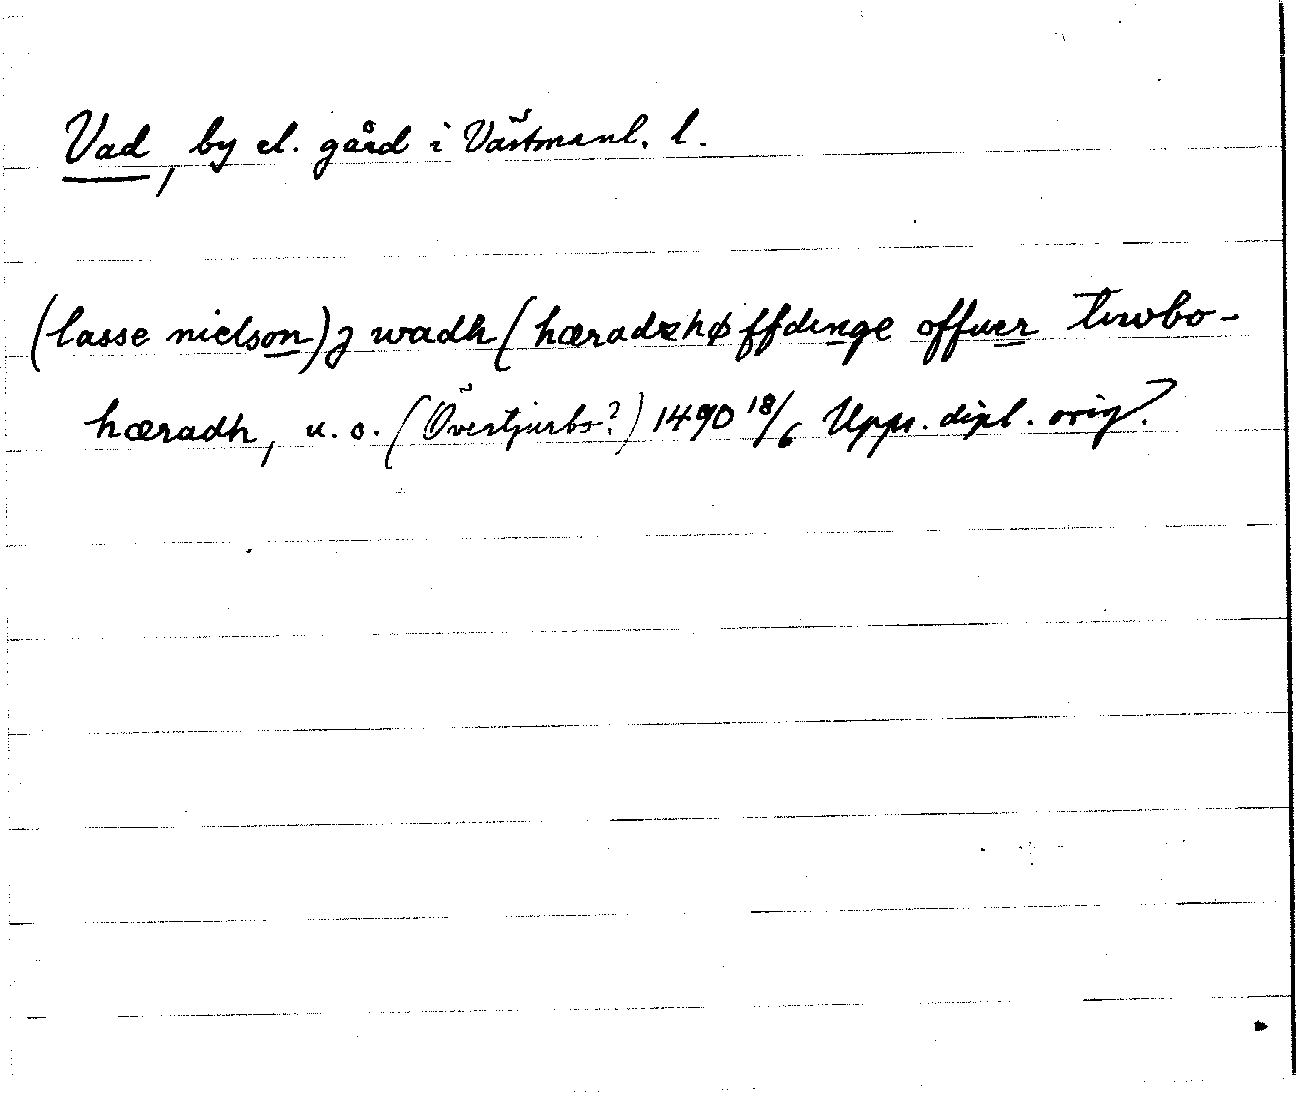 Vad, by el. gård i Västmanl. l.
(lasse nielson) j wadh (hæradzhøffdinge offuer tiwbo-
hæradh, u. o. (Övertjurbo?) 1490 18/6 Upps. dipl. orig.